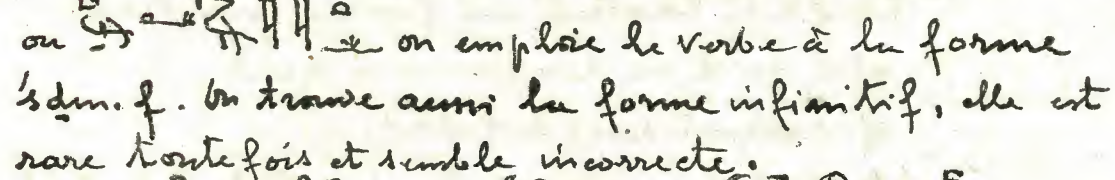 ou on emploie le verbe à la forme
'sḏm.f. On trouve aussi la forme infinitif, elle est
rare toutefois et semble incorrecte.